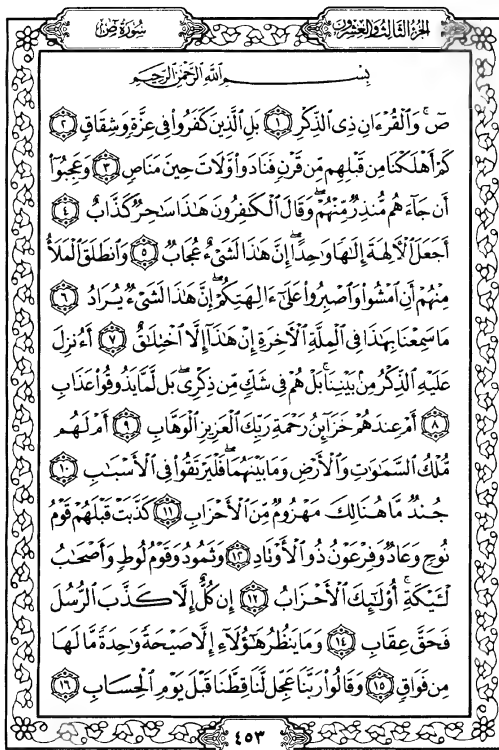 الجزء الثالث والعشرون
سورة ص
بِسْمِ ٱللَّهِ ٱلرَّحْمَٰنِ ٱلرَّحِيمِ
صٓ ۚ وَٱلْقُرْءَانِ ذِى ٱلذِّكْرِ ١ بَلِ ٱلَّذِينَ كَفَرُوا۟ فِى عِزَّةٍ وَشِقَاقٍ ٢
كَمْ أَهْلَكْنَا مِن قَبْلِهِم مِّن قَرْنٍ فَنَادَوا۟ وَّلَاتَ حِينَ مَنَاصٍ ٣ وَعَجِبُوٓا۟
أَن جَآءَهُم مُّنذِرٌ مِّنْهُمْ ۖ وَقَالَ ٱلْكَٰفِرُونَ هَٰذَا سَٰحِرٌ كَذَّابٌ ٤
أَجَعَلَ ٱلْءَالِهَةَ إِلَٰهًا وَٰحِدًا ۖ إِنَّ هَٰذَا لَشَىْءٌ عُجَابٌ ٥ وَٱنطَلَقَ ٱلْمَلَأُ
مِنْهُمْ أَنِ ٱمْشُوا۟ وَٱصْبِرُوا۟ عَلَىٰٓ ءَالِهَتِكُمْ ۖ إِنَّ هَٰذَا لَشَىْءٌ يُرَادُ ٦
مَا سَمِعْنَا بِهَٰذَا فِى ٱلْمِلَّةِ ٱلْءَاخِرَةِ إِنْ هَٰذَآ إِلَّا ٱخْتِلَٰقٌ ٧ أَءُنزِلَ
عَلَيْهِ ٱلذِّكْرُ مِنۢ بَيْنِنَا ۚ بَلْ هُمْ فِى شَكٍّ مِّن ذِكْرِى ۖ بَل لَّمَّا يَذُوقُوا۟ عَذَابِ
٨ أَمْ عِندَهُمْ خَزَآئِنُ رَحْمَةِ رَبِّكَ ٱلْعَزِيزِ ٱلْوَهَّابِ ٩ أَمْ لَهُم
مُّلْكُ ٱلسَّمَٰوَٰتِ وَٱلْأَرْضِ وَمَا بَيْنَهُمَا ۖ فَلْيَرْتَقُوا۟ فِى ٱلْأَسْبَٰبِ ١٠
جُندٌ مَّا هُنَالِكَ مَهْزُومٌ مِّنَ ٱلْأَحْزَابِ ١١ كَذَّبَتْ قَبْلَهُمْ قَوْمُ
نُوحٍ وَعَادٌ وَفِرْعَوْنُ ذُو ٱلْأَوْتَادِ ١٣ وَثَمُودُ وَقَوْمُ لُوطٍ وَأَصْحَٰبُ
لْـَٔيْكَةِ ۚ أُو۟لَٰٓئِكَ ٱلْأَحْزَابُ ١٢ إِن كُلٌّ إِلَّا كَذَّبَ ٱلرُّسُلَ
فَحَقَّ عِقَابِ ١٤ وَمَا يَنظُرُ هَٰٓؤُلَآءِ إِلَّا صَيْحَةً وَٰحِدَةً مَّا لَهَا
مِن فَوَاقٍ ١٥ وَقَالُوا۟ رَبَّنَا عَجِّل لَّنَا قِطَّنَا قَبْلَ يَوْمِ ٱلْحِسَابِ ١٦
٤٥٣